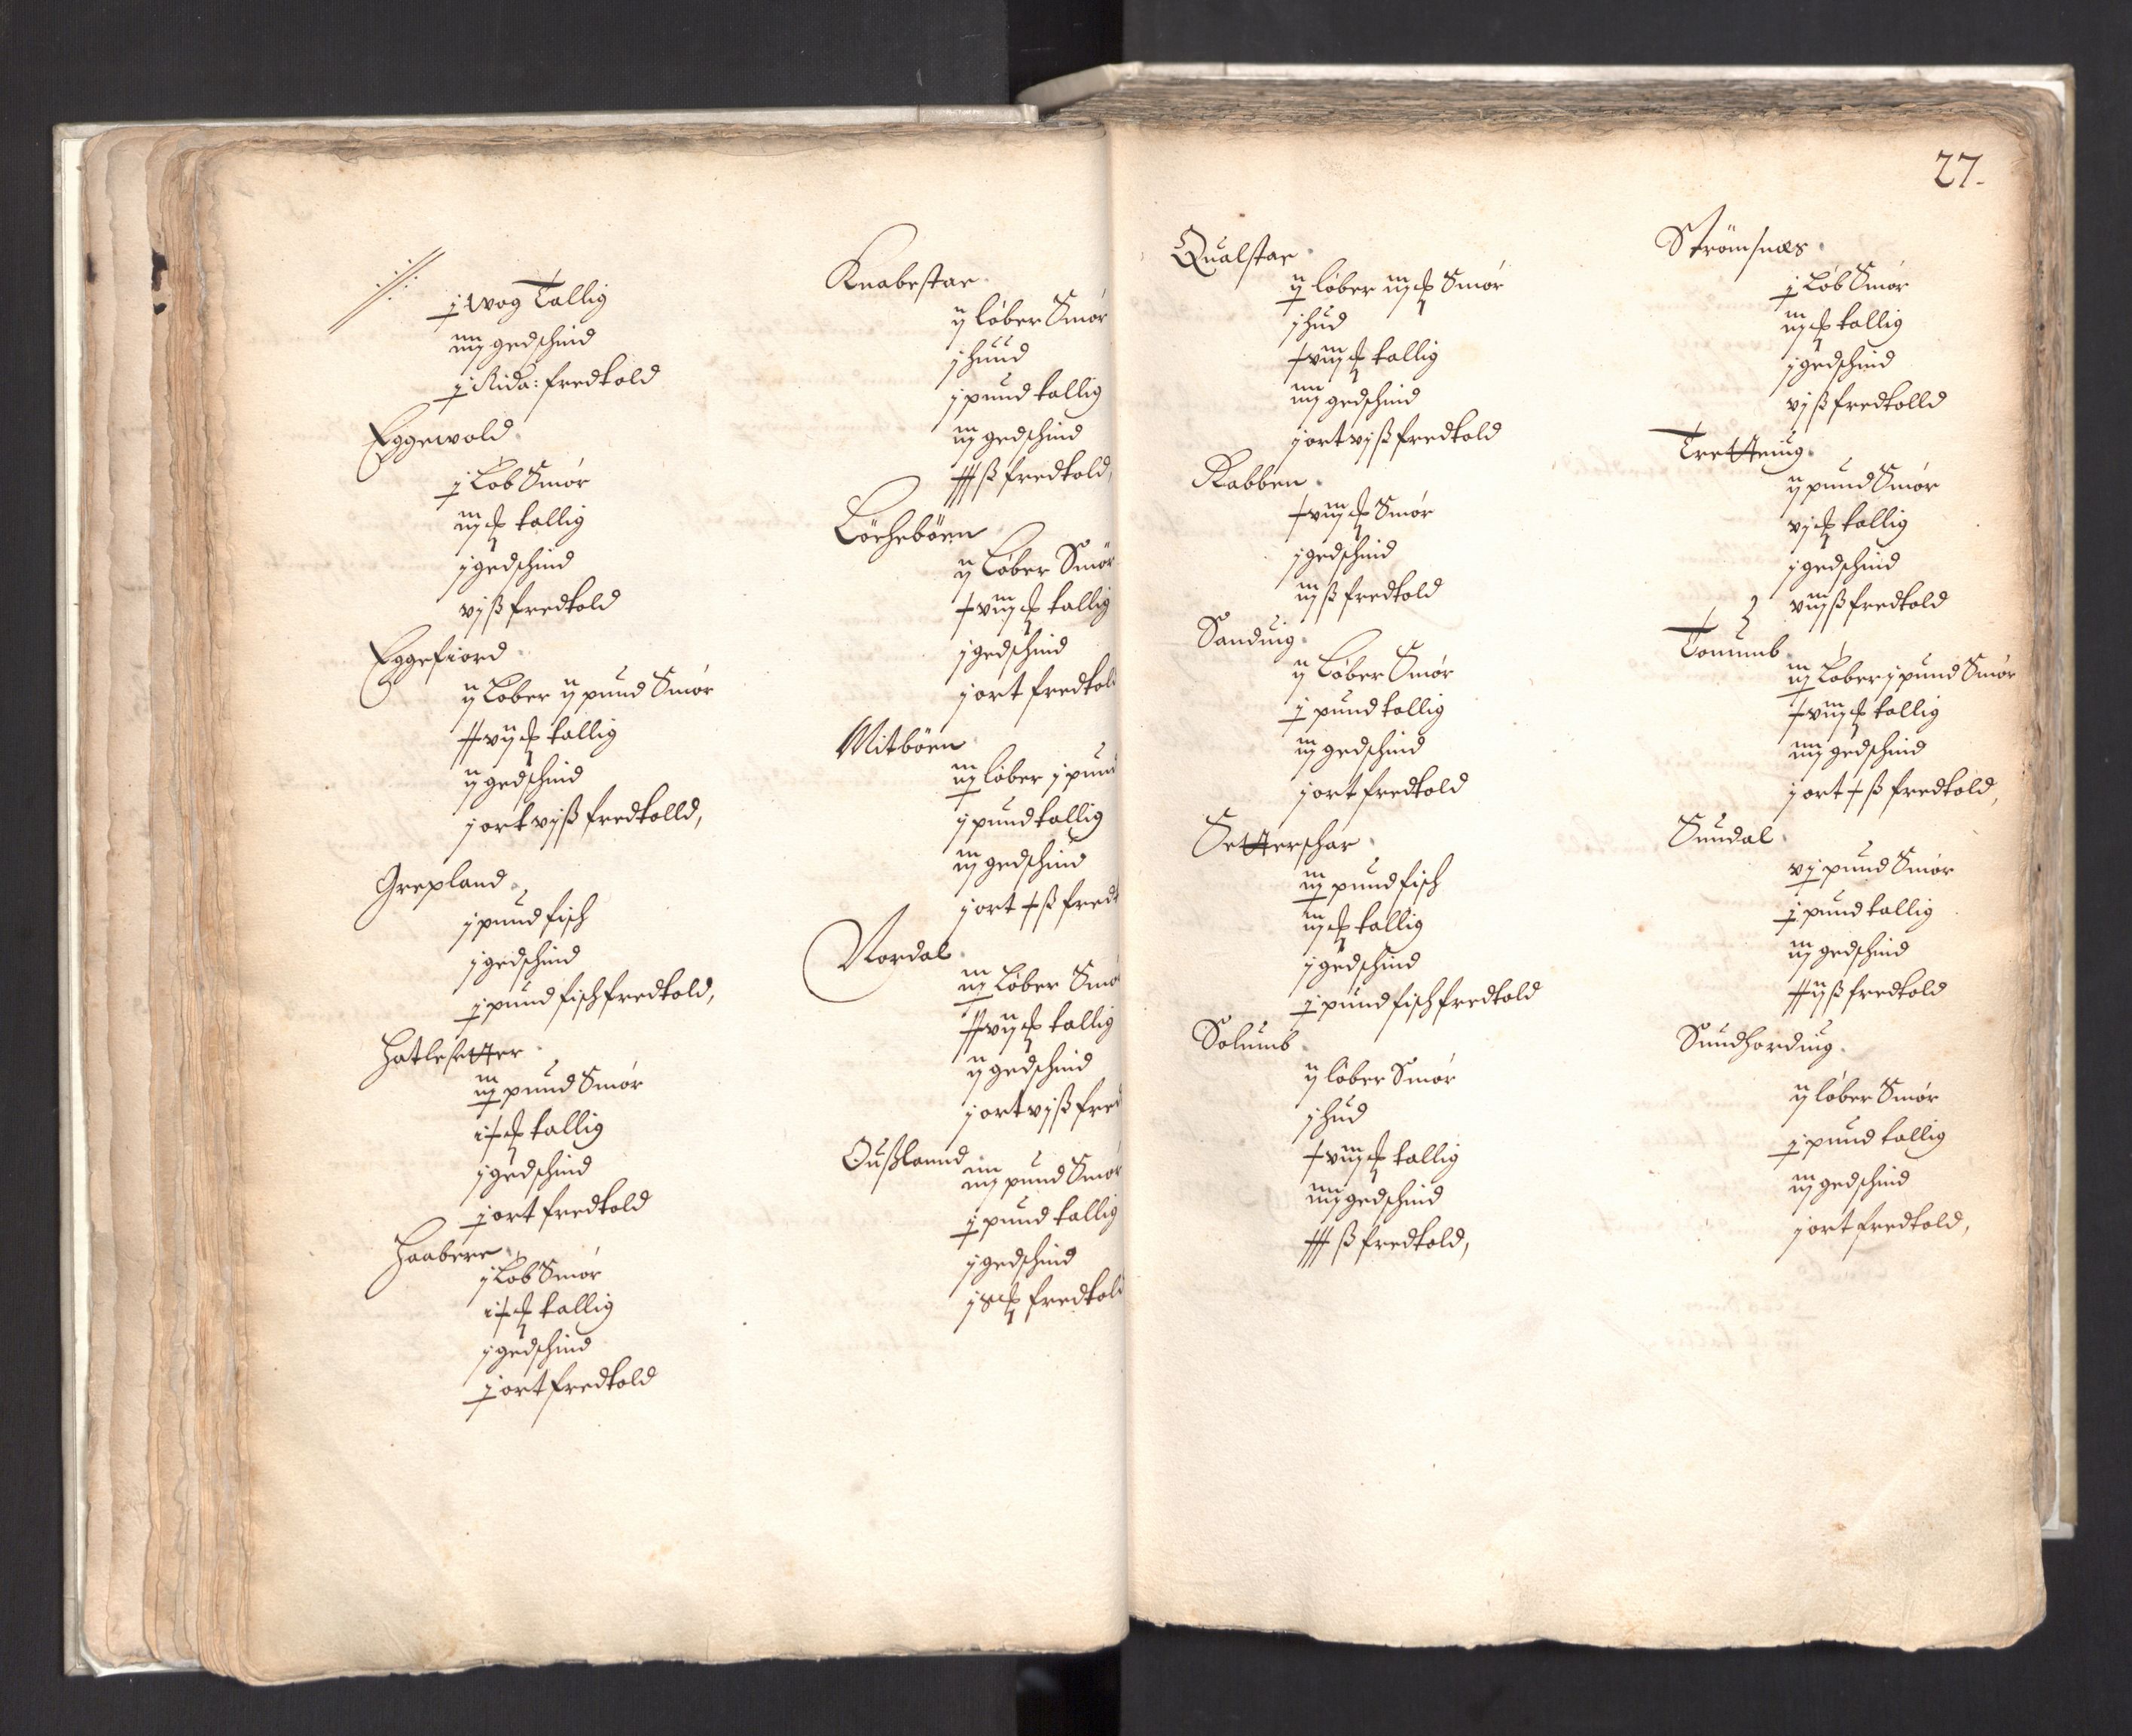 j wog Tallig
iiij gedschind
j Rida: fredkold
Eggewold.
j Lob Smör
iij ℔ tallig
j gedschind
vj ß fredkold
Eggefiord.
ij Löber ij pund Smör
xxvij ℔ tallig
ij gedschind
j ort vj ß fredkolld,
Grepland.
j pund fisch
j gedschind
j pund fisch fredkold,
Hatlesetter.
iij pund Smör
ix ℔ tallig
j gedschind
j ort fredkold
Haabere.
j Lob Smör
ix ℔ tallig
j gedschind
j ort fredkold
Knabestar.
ij löber Smör
j huud
j pund tallig
iij gedschind
xxx ß fredkold,
Löchebörn
ij Löber Smör
xviij ℔ tallig
j gedschind
j ort fredkold
Mitbörn.
iij löber j pund
j pund tallig
iij gedschind
j ort x ß fredk
Nordal.
iij Löber Smö
xxvij ℔ tallig
ij gedschind
j ort vj ß fred
Oußlannd.
iiij pund Smör
j pund tallig
j gedschind
j ℔ fredkold
27.
Qualstar.
ij löber iij ℔ Smör
j hud
xviij ℔ tallig
iiij gedschind
j ort vj ß fredkold
Rabben.
xviij ℔ Smör
j gedschind
iij ß fredkold
Sanduig.
ij Löber Smör
j pund tallig
iij gedschind
j ort fredkold
Setterschar.
iij pund fisch
iij ℔ tallig
j gedschind
j pund fisch fredkold
Solumb.
ij löber Smör
j hud
xviij ℔ tallig
iiij gedschind
xxx ß fredkold,
Strömsnæs.
j Löb Smör
iij ℔ tallig
j gedschind
vj ß fredkolld
Tretteuig.
ij pund Smör
vj ℔ tallig
j gedschind
viij ß fredkold
Tonumb.
iij Löber j pund Smör
xviij ℔ tallig
iiij gedschind
j ort x ß fredkold,
Sundal.
vj pund Smör
j pund tallig
iij gedschind
xxij ß fredkold
Sundhorduig.
ij löber Smör
j pund tallig
iij gedschind
j ort fredkold,